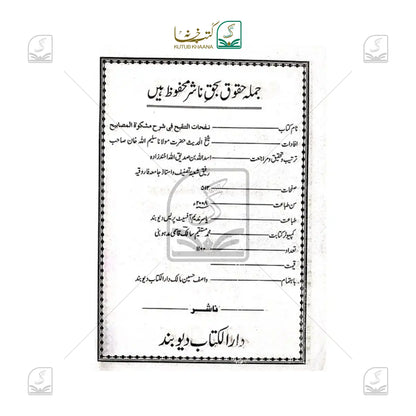 کتب خانہ
KUTUB KHAANA
جملہ حقوق بحق ناشر محفوظ ہیں
نام کتاب نفحات التنقیح فی شرح مشکوٰۃ المصابیح
افادات شیخ الحدیث حضرت مولانا سلیم اللہ خان صاحب
ترتیب و تحقیق و مراجعت اسد اللہ بن صدیق اللہ اشد زادہ
رفیق شعبہ تصنیف و استاذ جامعہ فاروقیہ
صفحات ۵۱۲
سن طباعت ۲۰۰۸ء
طباعت یاسر ندیم آفسیٹ پریس دیوبند
کمپیوٹر کتابت محمد مستقیم سالک قاسمی مدہوبنی
تعداد ۱۱۰۰
قیمت
باہتمام واصف حسین مالک دارالکتاب دیوبند
ناشر
دارالکتاب دیوبند